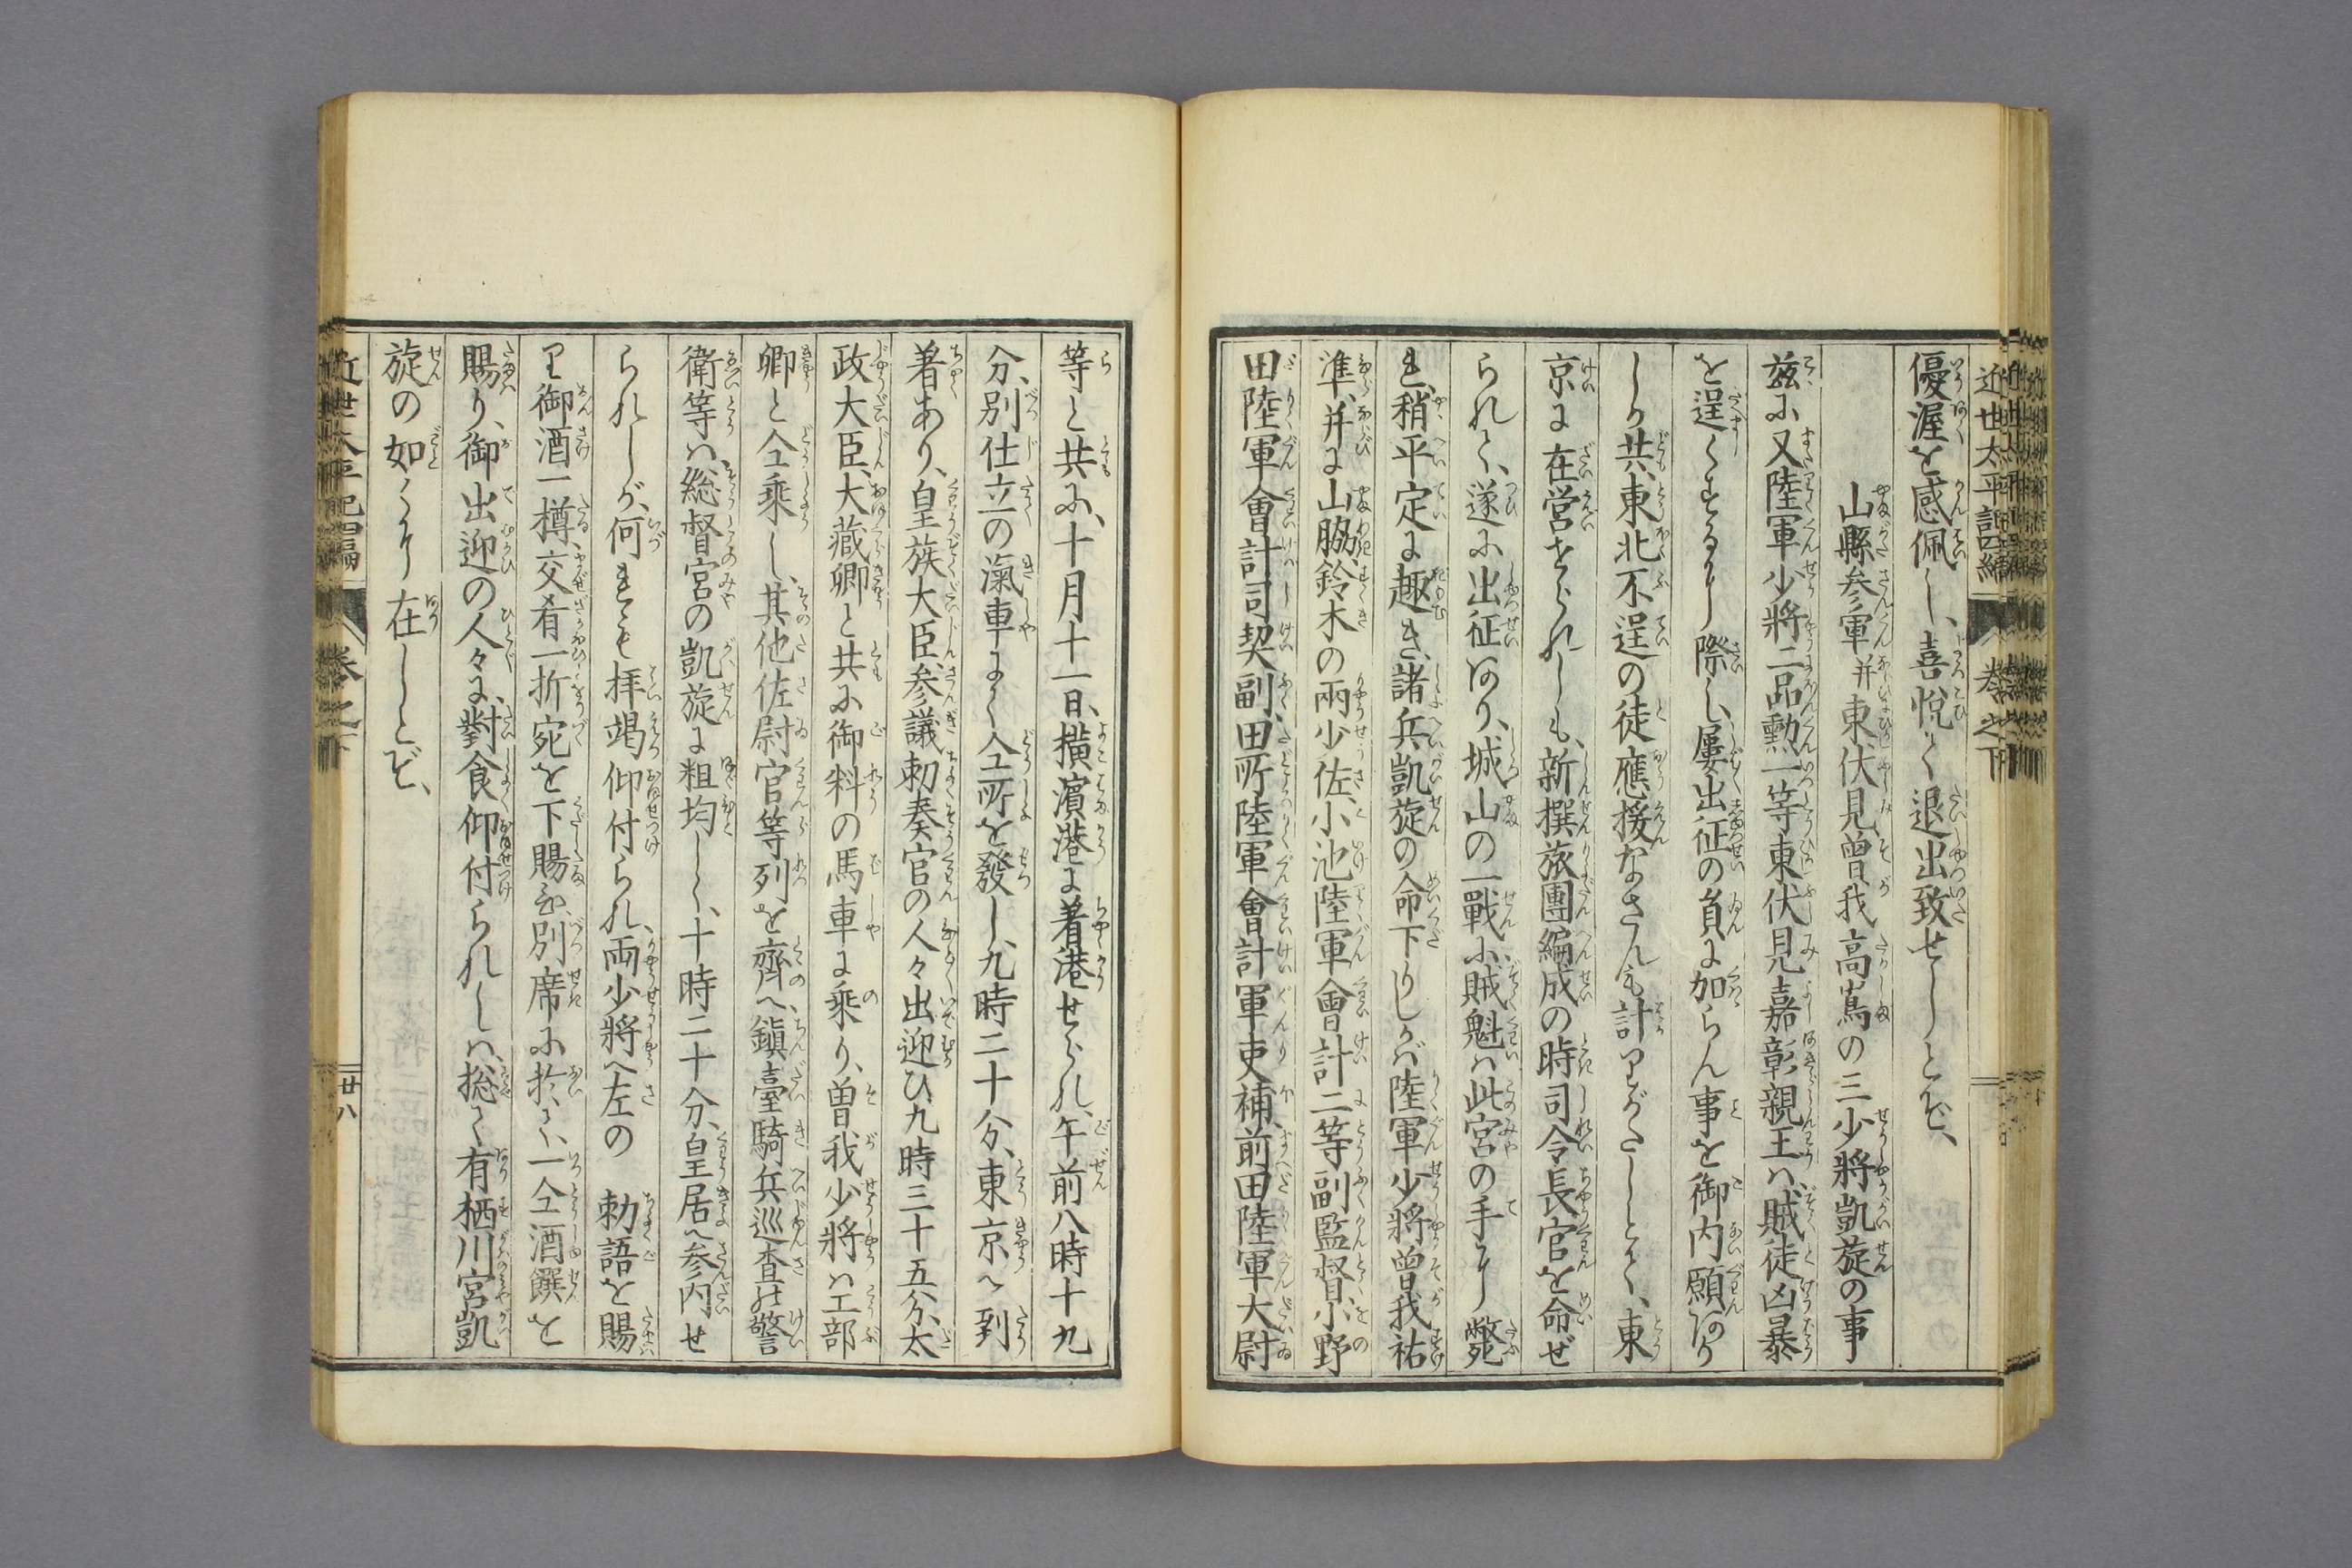 近世太平記四編 巻之下
優渥を感佩し、喜悦て退出致せしとぞ、
山縣参軍并東伏見曽我高嶌の三少將凱旋の事
茲に又陸軍少將二品勲一等東伏見嘉彰親王ハ、賊徒凶暴
を逞くするの際し、屡出征の員に加らん事を御内願あり
しか共、東北不逞の徒應援なさんも計りがたしとて、東
京に在営せられしも、新撰旅團編成の時司令長官を命ぜ
られて、遂に出征あり、城山の一戰に、賊魁ハ此宮の手に斃
れ、稍平定に趣き、諸兵凱旋の命下りしかバ陸軍少將曽我祐
準、并に山脇、鈴木の兩少佐、小池陸軍會計二等副監督、小野
田陸軍會計司契副、田所陸軍會計軍吏補、前田陸軍大尉
等と共に、十月十一日、横濱港に着港せられ、午前八時十九
分、別仕立の瀛車にて仝所を發し、九時二十分、東京へ到
着あり、皇族大臣、参議勅奏官の人々出迎ひ、九時三十五分、太
政大臣、大藏卿と共に御料の馬車に乘り、曽我少將ハ工部
卿と仝乘し、其他佐尉官等列を齊へ、鎮臺騎兵巡査の警
衛等ハ、総督宮の凱旋に粗均しく、十時二十分、皇居へ参内せ
られしが、何れも拝謁仰付られ、両少將へ左の 勅語を賜
り御酒一樽、交肴一折宛を下賜ひ、別席に於て、一仝酒饌を
賜り、御出迎の人々に、對食仰付られしハ、総て有栖川宮凱
旋の如くにり在しとぞ、
近世太平記四編 巻之下 廿八